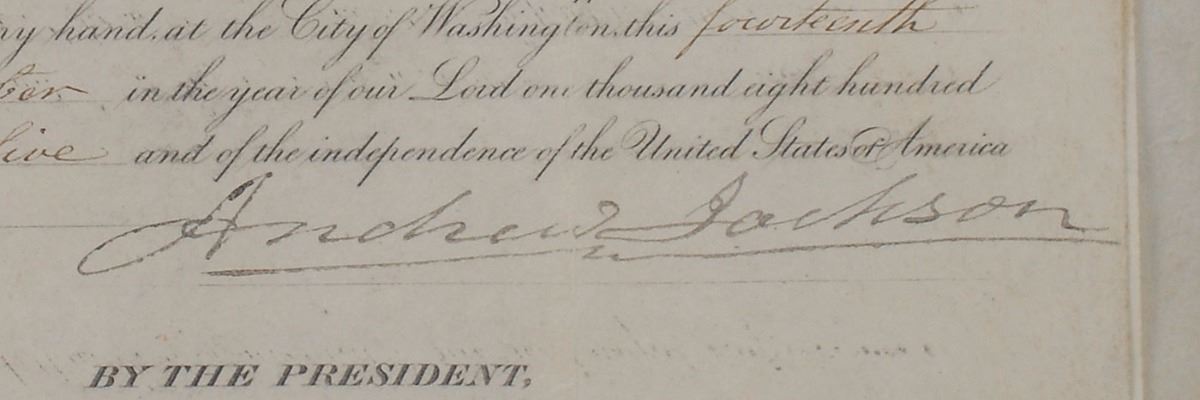 hand, at the City of Washington, this fourteenth
in the year of our Lord one thousand eight hundred
five and of the independence of the United States of America
Andrew Jackson
BY THE PRESIDENT,